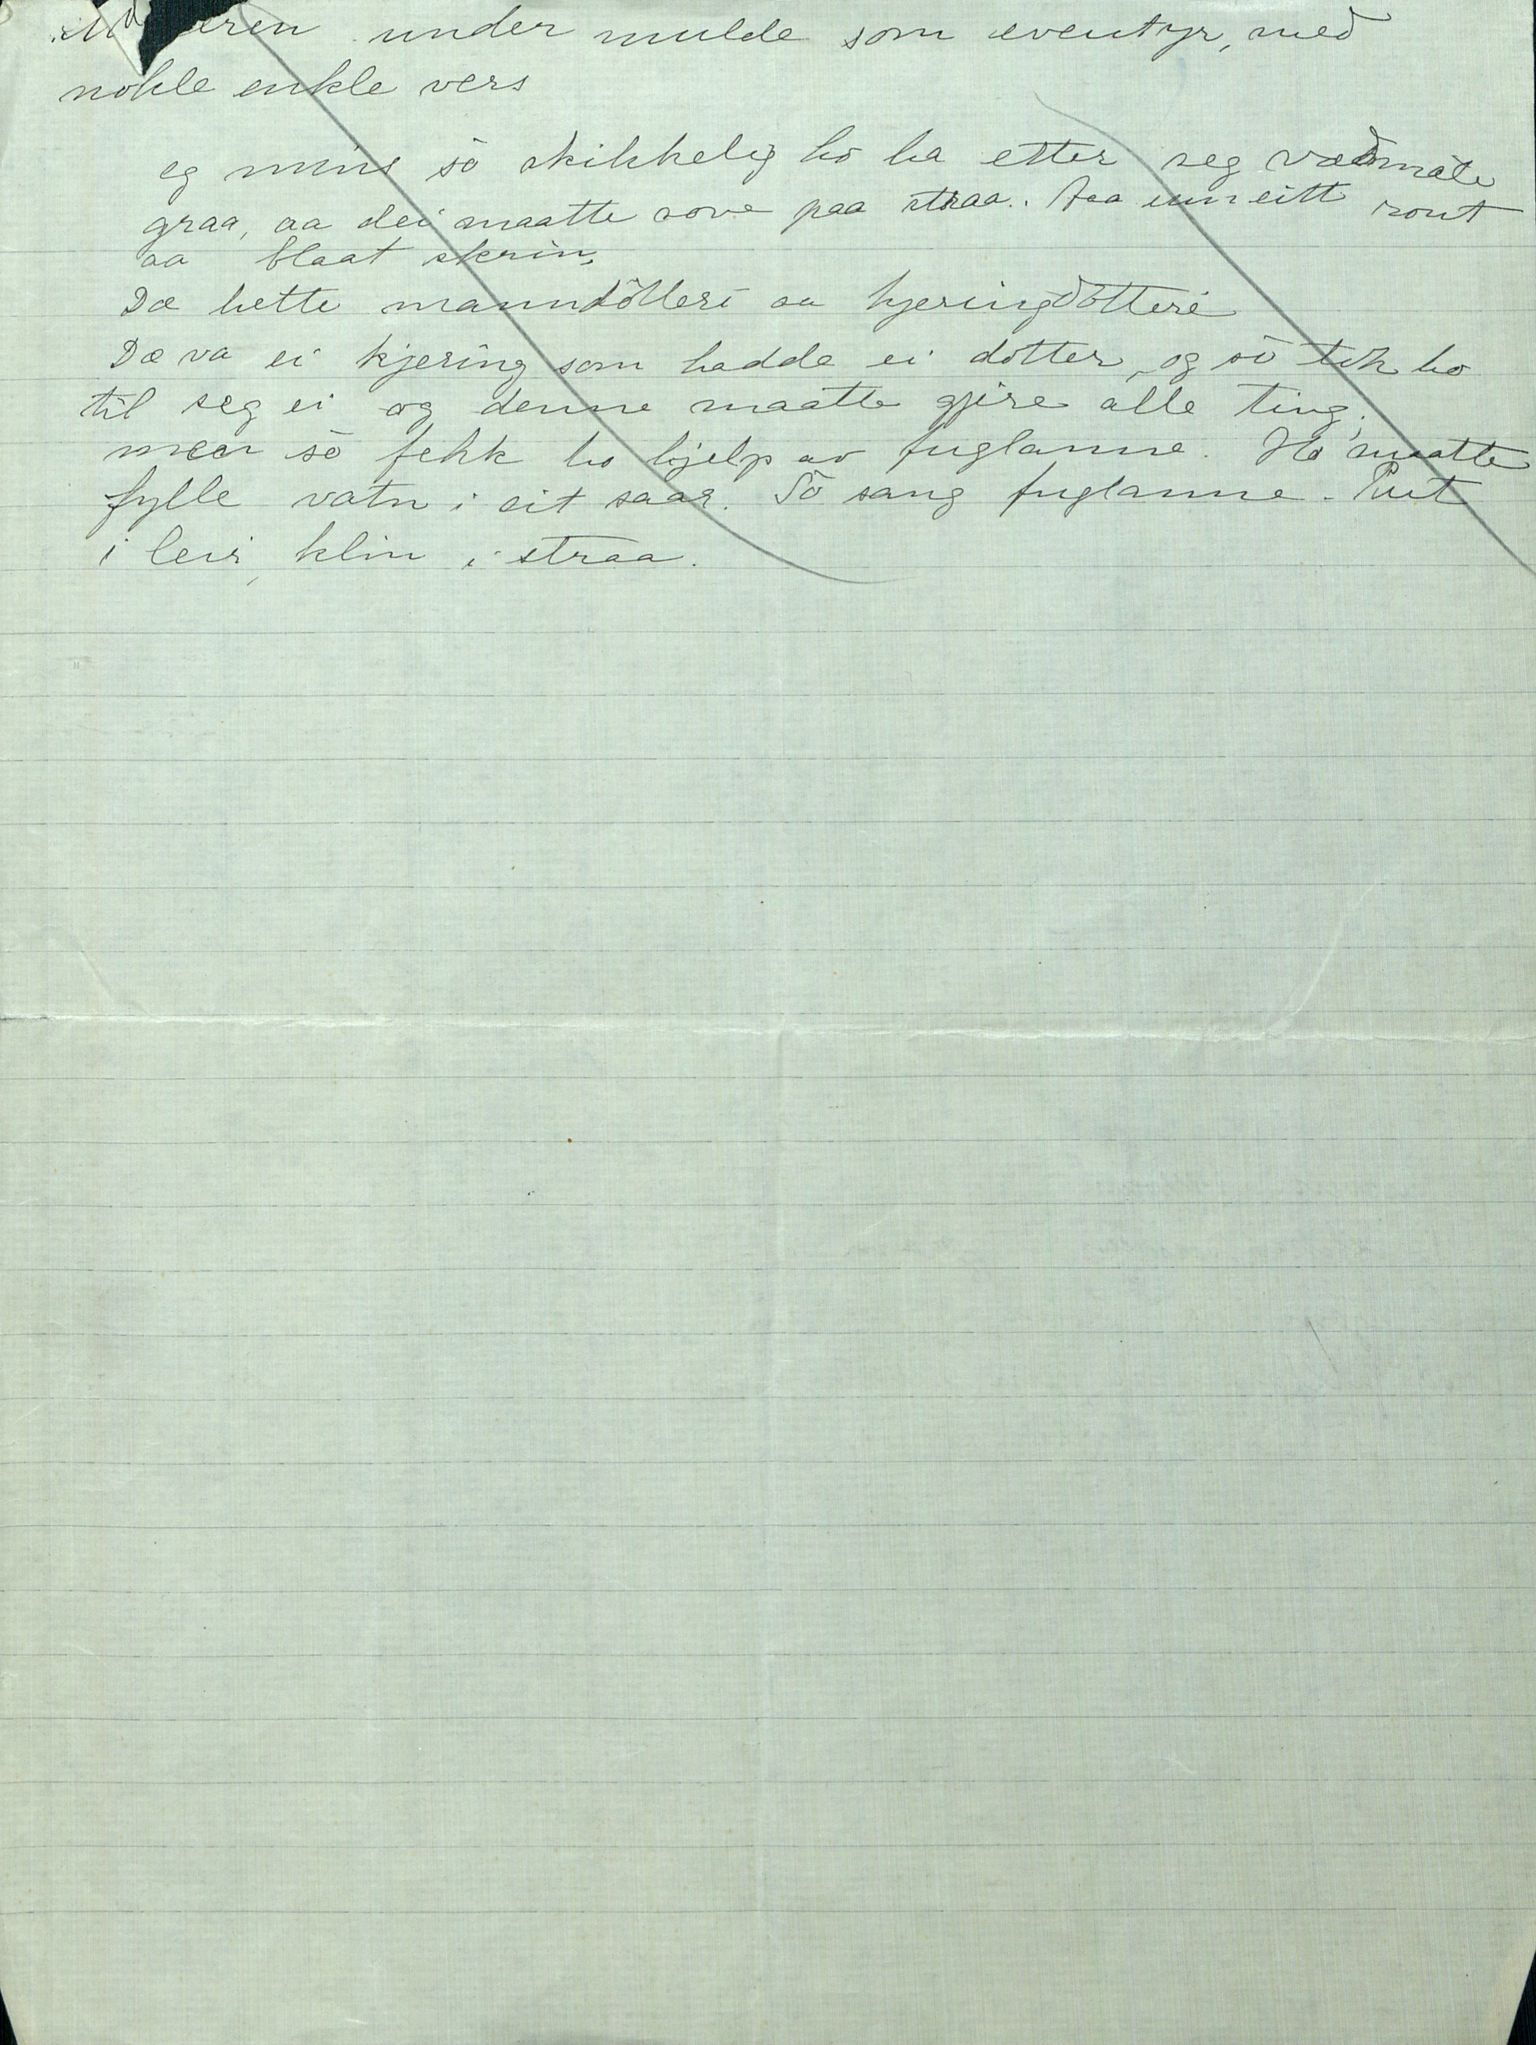 under mulde som eventyr, med
nokle enkle vers
eg mins sò skikkelig ho ha etter seg vaðmåle
graa, aa dei maatte sove paa straa. Aa um eitt rout
aa blaat skrin,
Dæ hette manndòtteri aa kjeringdòtteri
Dæ va ei kjering som hadde ei dotter, og sò tok ho
til seg ei og denne maatte gjire alle ting,
men sò fekk ho hjelp av fuglanne. Ho maatte
fylle vatn i eit saar. Sò sang fuglanne. Put
i leir, klin i straa.